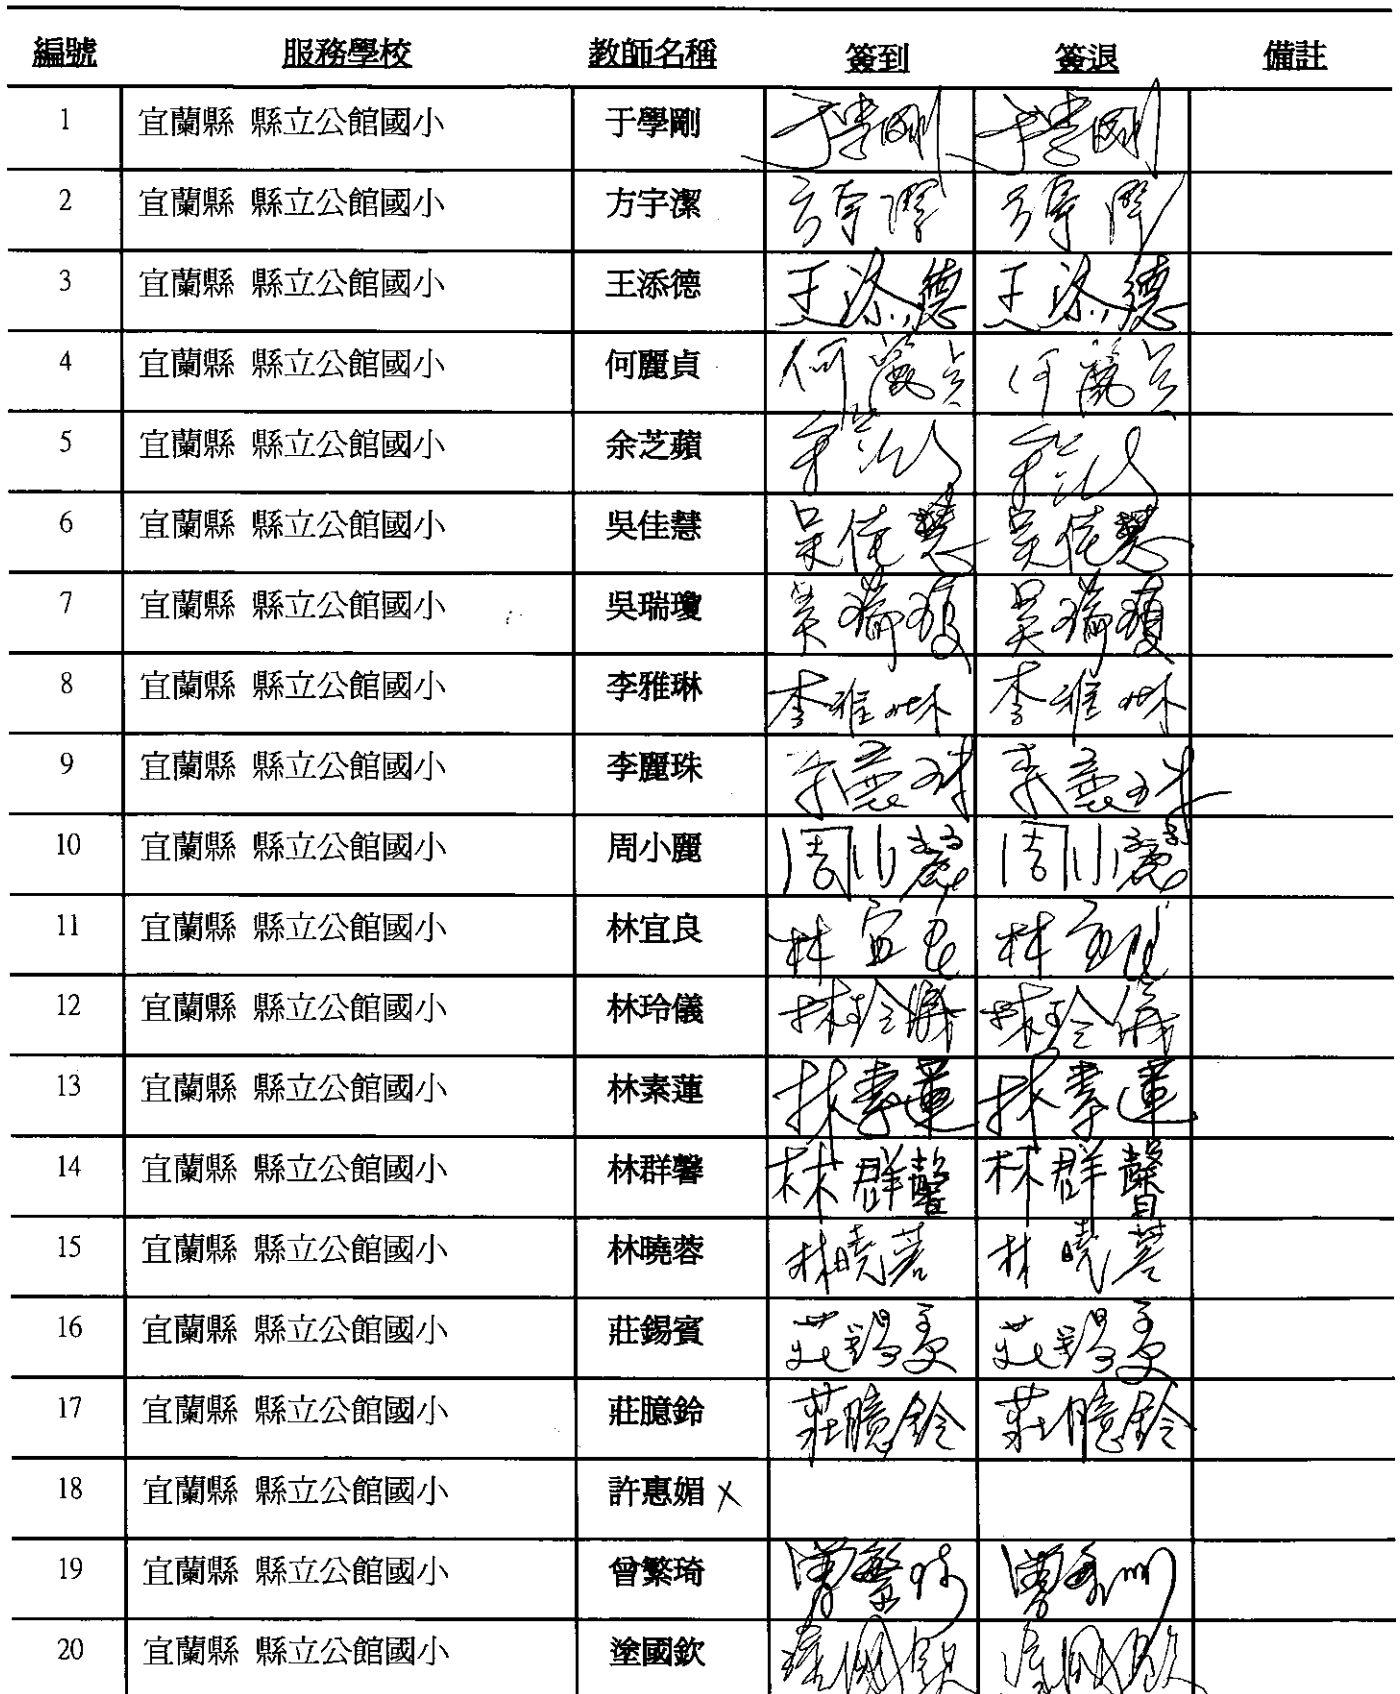 編號 服務學校 教師名稱 簽到 簽退 備註
1 宜蘭縣 縣立公館國小 于學剛 于學剛 于學剛
2 宜蘭縣 縣立公館國小 方宇潔 方宇潔 方宇潔
3 宜蘭縣 縣立公館國小 王添德 王添德 王添德
4 宜蘭縣 縣立公館國小 何麗貞 何麗貞 何麗貞
5 宜蘭縣 縣立公館國小 余芝蘋
6 宜蘭縣 縣立公館國小 吳佳慧 吳佳慧 吳佳慧
7 宜蘭縣 縣立公館國小 吳瑞瓊 吳瑞瓊 吳瑞瓊
8 宜蘭縣 縣立公館國小 李雅琳 李雅琳 李雅琳
9 宜蘭縣 縣立公館國小 李麗珠 李麗珠 李麗珠
10 宜蘭縣 縣立公館國小 周小麗 周小麗 周小麗
11 宜蘭縣 縣立公館國小 林宜良 林宜良 林宜良
12 宜蘭縣 縣立公館國小 林玲儀 林玲儀 林玲儀
13 宜蘭縣 縣立公館國小 林素蓮 林素蓮 林素蓮
14 宜蘭縣 縣立公館國小 林群馨 林群馨 林群馨
15 宜蘭縣 縣立公館國小 林曉蓉 林曉蓉 林曉蓉
16 宜蘭縣 縣立公館國小 莊錫賓 莊錫賓 莊錫賓
17 宜蘭縣 縣立公館國小 莊臆鈴 莊臆鈴 莊臆鈴
18 宜蘭縣 縣立公館國小 許惠媚 X
19 宜蘭縣 縣立公館國小 曾繁琦 曾繁琦 曾繁琦
20 宜蘭縣 縣立公館國小 塗國欽 塗國欽 塗國欽